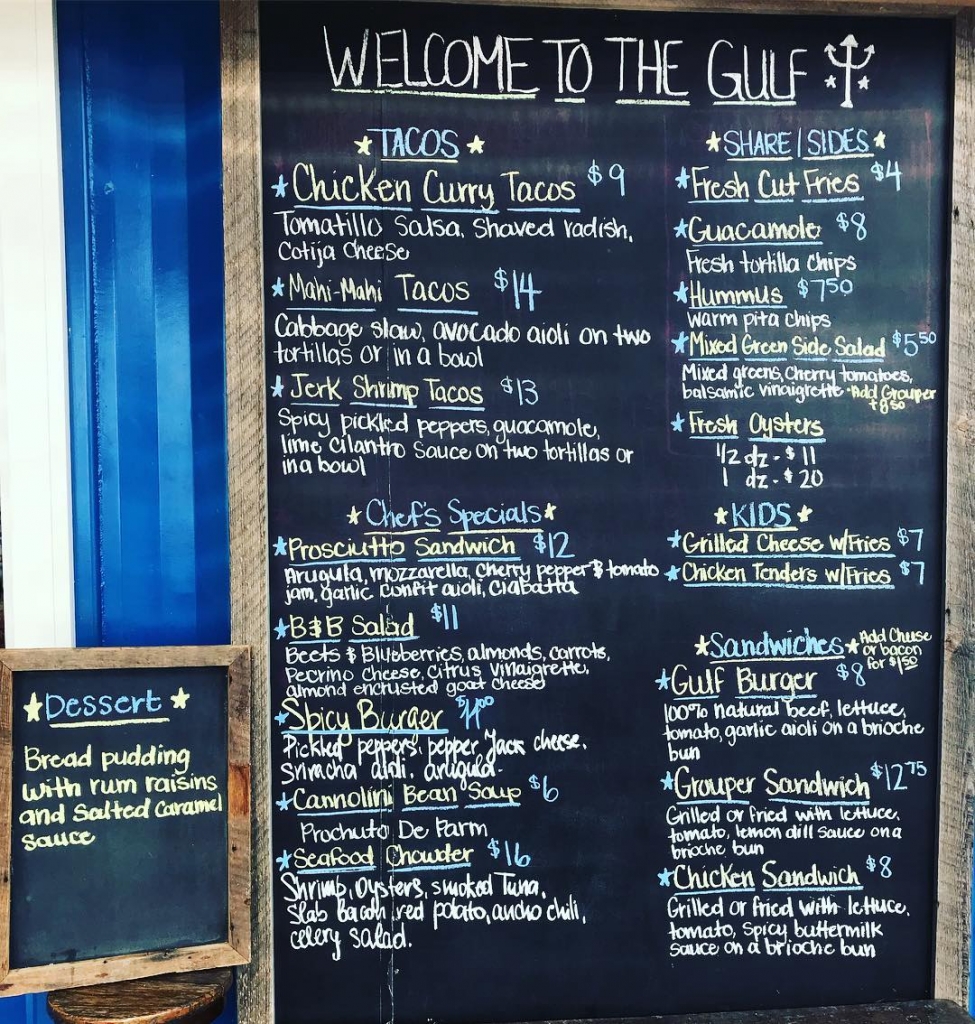 WELCOME TO THE GULF
TACOS
Chicken Curry Tacos $9
Tomatillo Salsa, Shaved radish,
Cotija Cheese
Mahi-Mahi Tacos $14
Cabbage slaw, avocado aioli on two
tortillas or in a bowl
Jerk Shrimp Tacos $13
Spicy pickled peppers, guacamole,
lime cilantro Sauce on two tortillas or
in a bowl
Chef's Specials
Prosciutto Sandwich $12
Arugula, mozzarella, Cherry pepper & tomato
jam, garlic confit aioli, Ciabatta
B&B Salad $11
Beets & Blueberries, almonds, carrots,
Pecrino Cheese, Citrus Vinaigrette,
almond encrusted goat cheese
Spicy Burger
Pickled peppers, pepper Jack cheese,
Sriracha aioli, arugula.
Cannolini Bean Soup $6
Prochuto De Parm
Seafood Chowder $16
Shrimp, Oysters, smoked Tuna,
Slab Bacon, red potato, ancho chili,
celery salad.
SHARE/SIDES
Fresh Cut Fries $4
Guacamole $8
Fresh tortilla chips
Hummus $7.50
warm pita chips
Mixed Green Side Salad $5.50
Mixed greens, cherry tomatoes,
balsamic vinaigrette - Add Grouper
+8.50
Fresh Oysters
1/2 dz - $11
1 dz - $20
KIDS
Grilled Cheese w/Fries $7
Chicken Tenders w/Fries $7
Sandwiches
Add Cheese
or bacon
for $1.50
Gulf Burger $8
100% natural beef, lettuce,
tomato, garlic aioli on a brioche
bun
Grouper Sandwich $12.75
Grilled or fried with lettuce,
tomato, lemon dill sauce on a
brioche bun
Chicken Sandwich $8
Grilled or fried with lettuce,
tomato, spicy buttermilk
sauce on a brioche bun
Dessert
Bread pudding
with rum raisins
and Salted Caramel
sauce